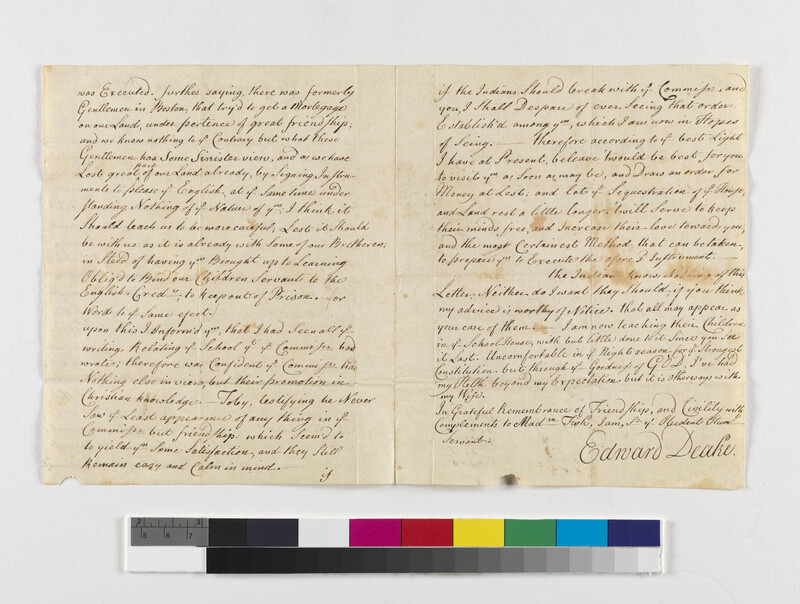 was Executed. further saying, there was formerly
Gentlemen in Boston, that try'd to get a Mortegage
on our Land, under pertence of great friendship;
and we know nothing to yͤ Contrary but what these
Gentlemen has Some Sinister view, and as we have
Lost great part of our Land already, by Signing Instru-
ments to please yͤ English, at yͤ Same time under
standing Nothing of yͤ Nature of yᵐ; I think it
Should teach us to be more careful; Lest it Should
be with us as it is already with Some of our Bretheren;
in Stead of having yᵐ Brought up to Learning
Oblig'd to Bind our Children Servants to the
English Credʳˢ, to keep out of Prison. — or
Words to yͤ Same efect.
upon this I Inform'd yᵐ, that I had Seen all yͤ
writing, Relating yͤ School yᵗ yͤ Commissʳˢ had
wrote; therefore was Confident yͤ Commissʳˢ had
Nothing else in view, but their promotion in
Christian knowledge. Toby, testifying he Never
Saw yͤ Least appearance of any thing in yͤ
Commissʳˢ but friendship. which Seem'd to
to yield yᵐ Some Satisfaction, and they Still
Remain easy and Calm in mind.
if
if the Indians Should break with yͤ Commissʳˢ, and
you, I Shall Despare of ever Seeing that order
Establish'd among yᵐ, which I am now in Hopes
of Seing. — therefore according to yͤ best Light
I have at Present, beleave twould be best, for you
to visit yᵐ as Soon as may be, and Draw an order, for
Money at Lest; and let yͤ Sequestration of yͤ House,
and Land rest a little longer. twill Serve to keep
their minds free, and Increase their love toward you,
and the most Certainest Method, that can be taken,
to prepare yᵐ to Execute the afore sͩ Instrument. —
the Indians knows Nothing of this
Letter; Neither do I want they Should; if you think
my advice is worthy of Notice. that all may appear as
your care of them. — I am now teaching their Children
in yͤ School House, with but little done to it Since you See
it Last. Uncomfortable in yͤ Night season for yͤ Strongest
Constitution. but through yͤ Goodness of GOD, I've had
my Helth beyond my Expectation but it is otherways with
my Wife.
In Grateful Remembrance of Friendship, and Civility with
Complements to Madᵐ Fish, I am, Sʳ yͤ Redent Hum
Servant.
Edward Deake.